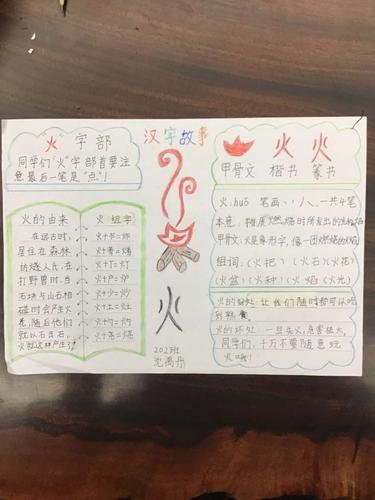 "火"字部
同学们"火"字部首要注
意最后一笔是"点"!
火的由来
在远古时,
居住在森林
的燧人氏,在
打野曹时,当
石块与山石相
碰时会产生火
花,随后他们
就以石击石,
火就这样产生了
火 组字
火+乍=炸
火+丁=灯
火+户=炉
火+少=炒
火+土=灶
火+勺=灼
汉字故事
火
202班
火 火
甲骨文 楷书 篆书
火:huǒ 笔画:丶丿丶一共4笔
本意:物质燃烧时所发出的光和焰
甲骨文:火是象形字,像一团燃烧的火焰
组词:(火把)(火石)(火花)
(火盆)(火种)(火焰)(火光)
火的好处:让我们随时都可以吃
到熟食
火的坏处:一旦失火,危害极大,
同学们,千万不要随意玩
火哦!